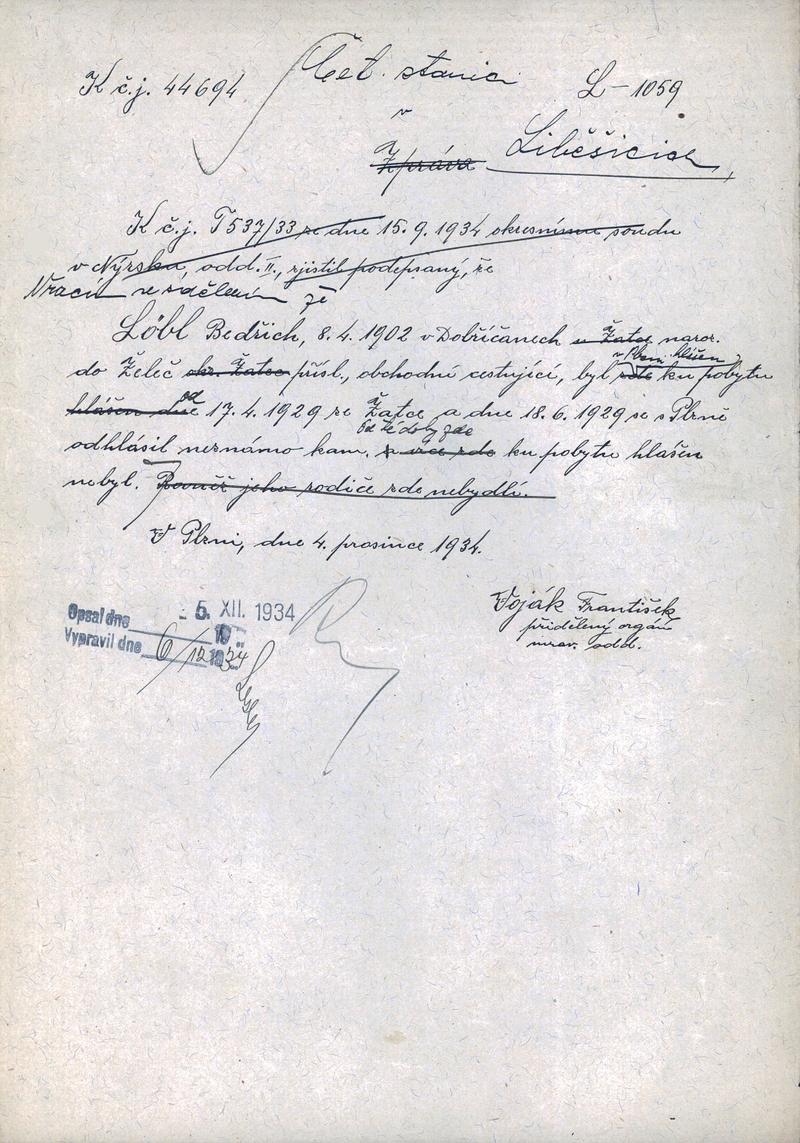 K č.j. 44694
Čet. stanici
L-1059
v
Zpráva Liběšicích,
K č.j. T 537/33 ze dne 15.9.1934 okresnímu soudu
v Nýrsku, odd. II., zjistil podepsaný, že
Vrací se sdělením že
Löbl Bedřich, 8.4.1902 v Dobřičanech u Žatce naroz.
v Plzni hlášen
do Želeč okr. Žatec přísl., obchodní cestující, byl zde ku pobytu
od
hlášen dne 17.4.1929 ze Žatce a dne 18.6.1929 se s Plzně
Od té doby zde
odhlásil neznámo kam. a více zde ku pobytu hlášen
nebyl. Rovněž jeho rodiče zde nebydlí.
V Plzni, dne 4. prosince 1934.
Voják František
přidělený orgán
mrav. odd.
Opsal dne 5. XII. 1934
Vypravil dne 6/12 1934